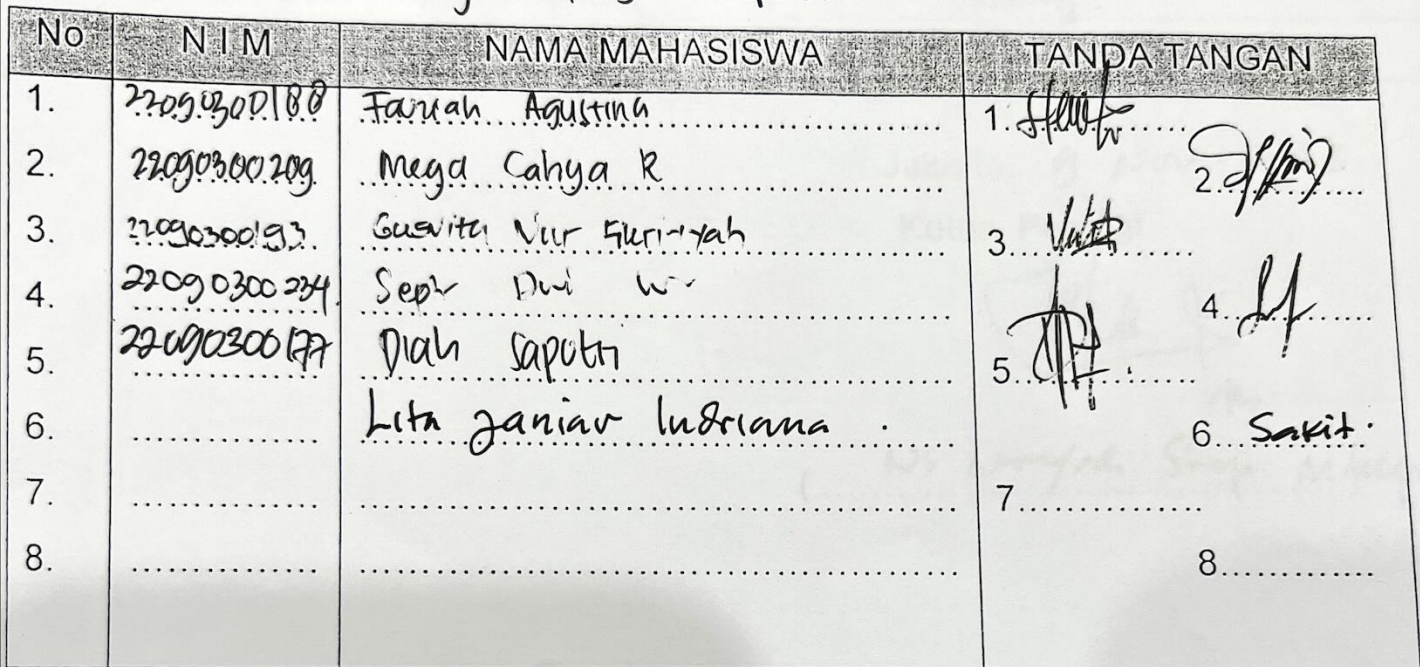 No NIM NAMA MAHASISWA TANDA TANGAN
1. 22090300188 Agustina 1.
2. 22090300209 Mega Cahya R 2.
3. 22090300193 Gusvita Nur 3.
4. 22090300234 Dwi 4.
5. 22090300177 Diah Saputri 5.
6. Lita Janiar Indriana 6. Sakit.
7. 7
8. 8